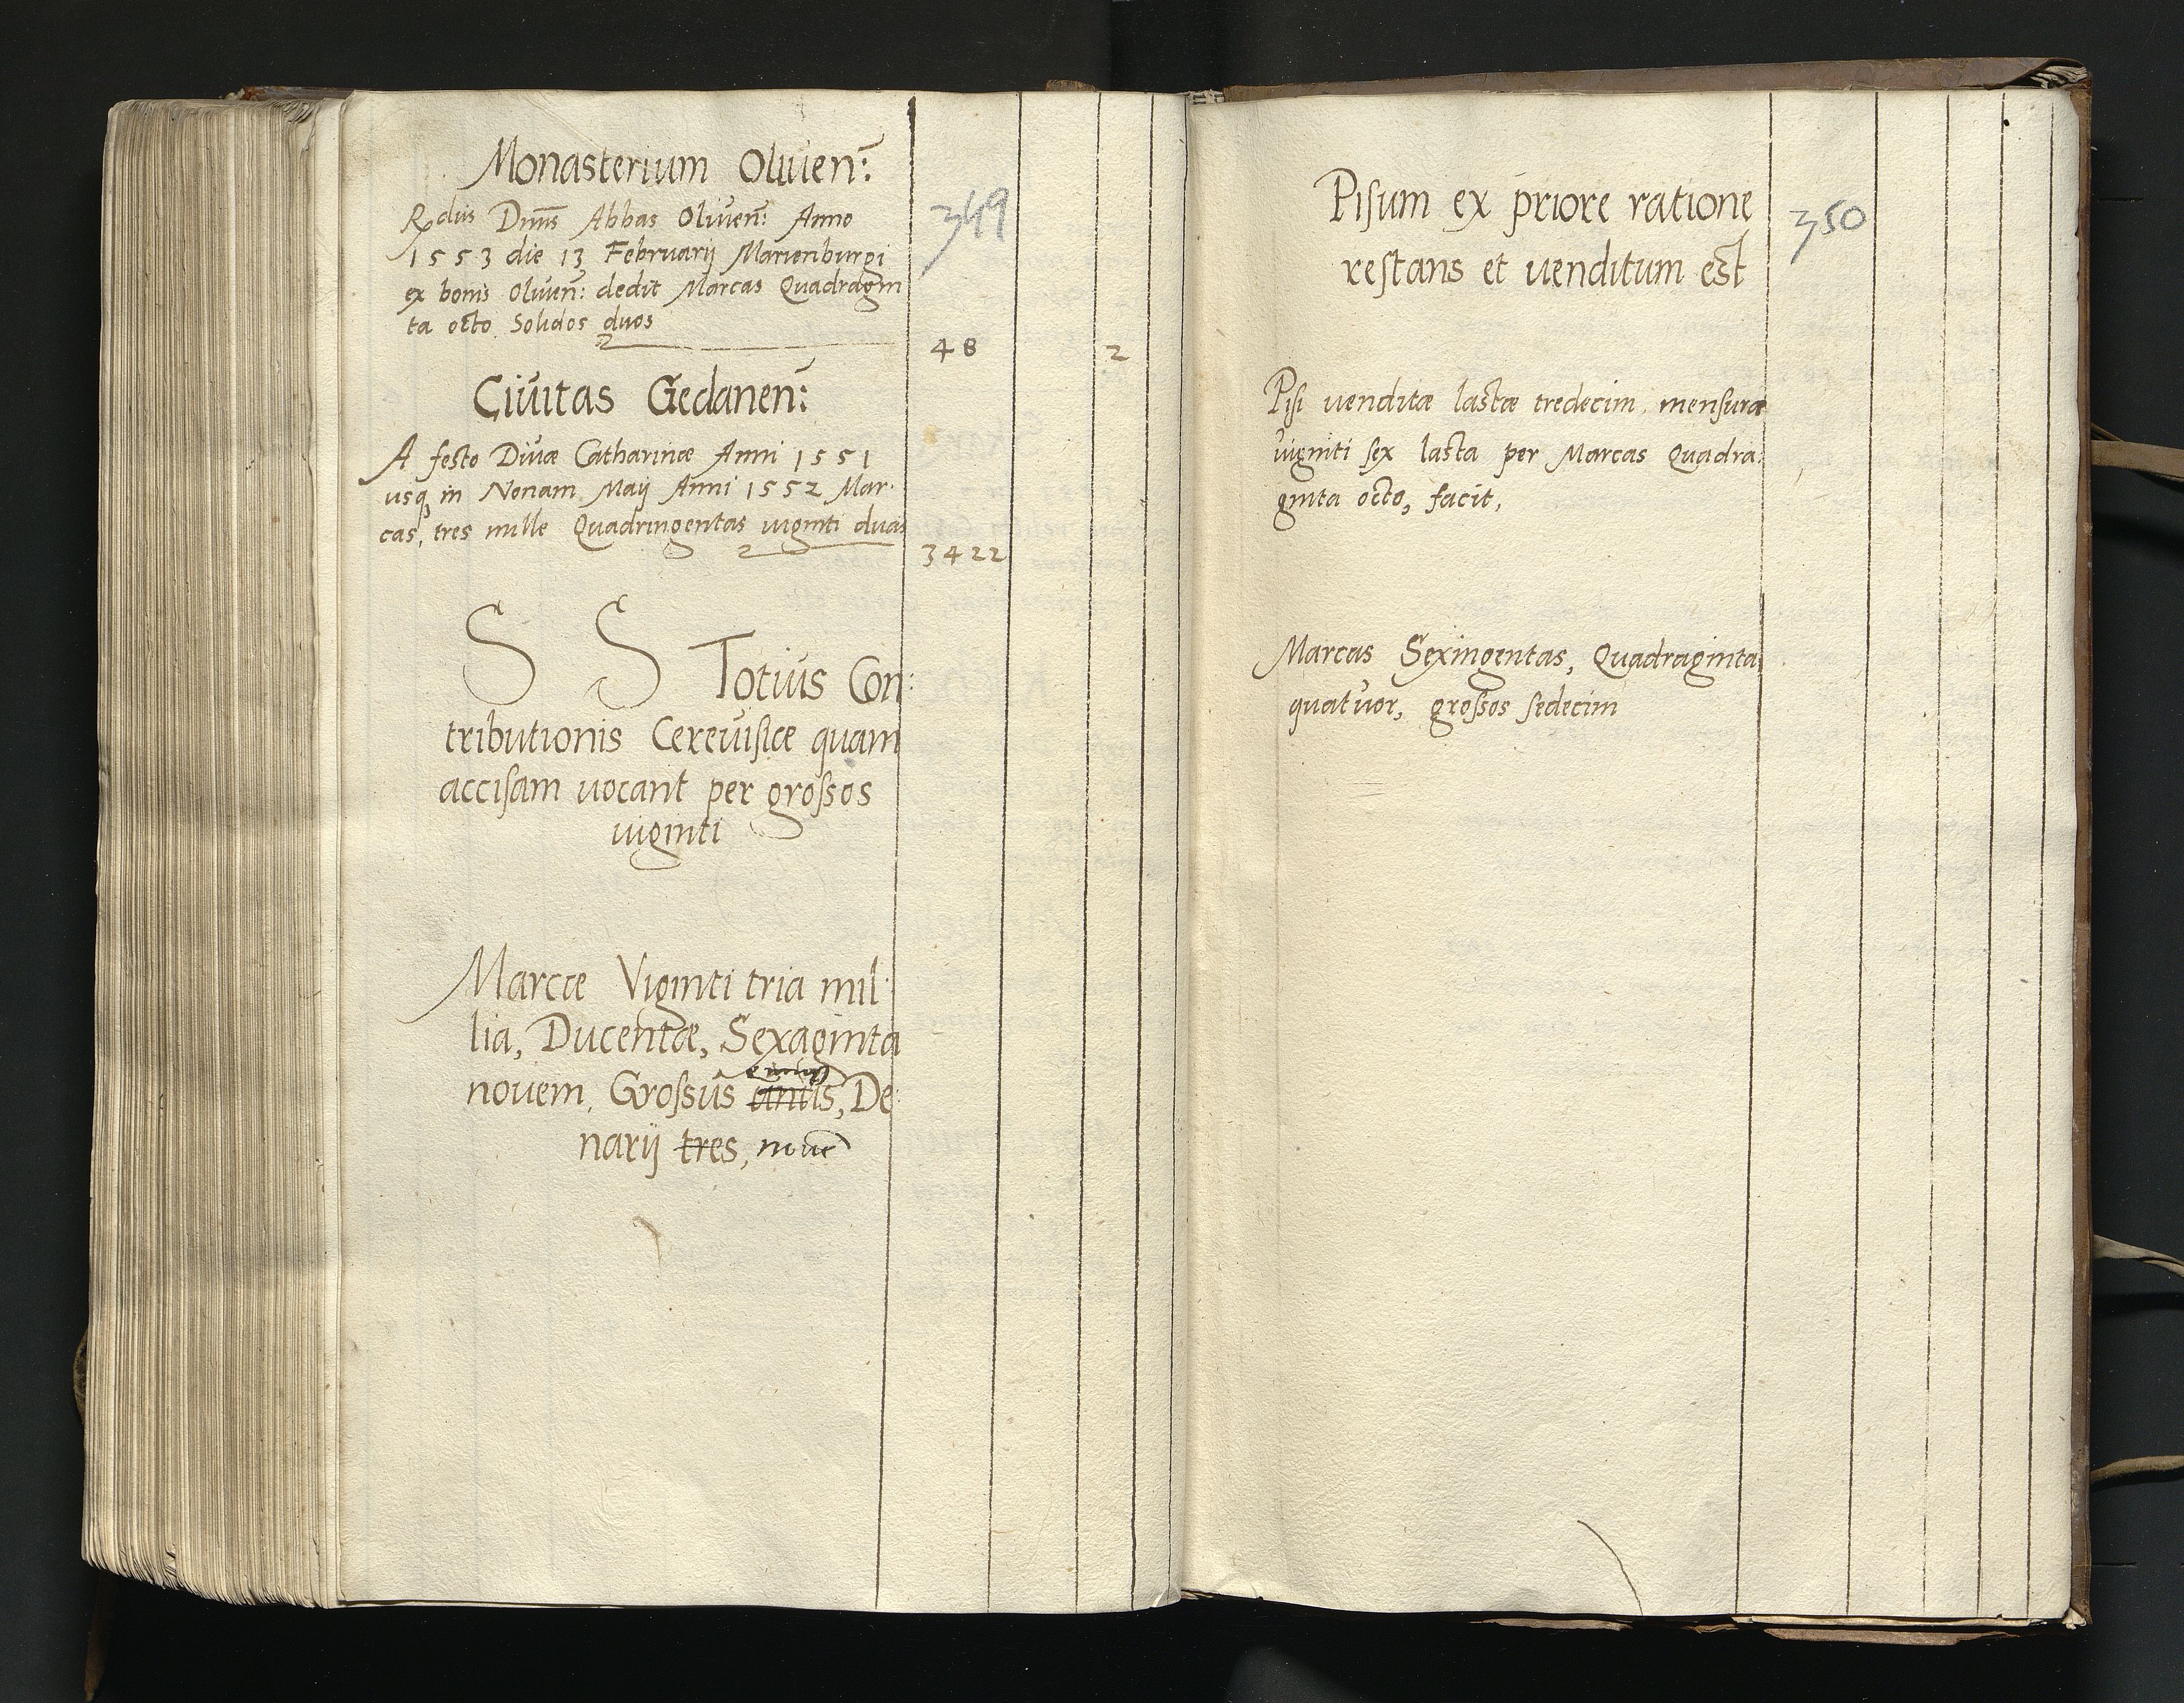 Monasterium Oliuen:
349
Rdus Dnus Abbas Oliuen: Anno
1553 die 13 Februarij Marienburgi
ex bonis Oliuen: dedit Marcas Quadragin
ta octo Solidos duos
48 2
Ciuitas Gedanen:
A festo Diuæ Catharinæ Anni 1551
usq in Nonam Maij Anni 1552 Mar-
cas, tres mille Quadringentas uiginti duas
3422
S S Totius Con:
tributionis Cereuisiæ quam
accisam uocant per grossos
uiginti
Marcæ Viginti tria mil-
lia, Ducentæ, Sexaginta
nouem, Grossus unus, De:
narij tres, noue
Pisum ex priore ratione
350
restans et uenditum est
Pisi uenditæ lastæ tredecim, mensuræ
uigniti sex lasta per Marcas Quadra:
ginta octo, facit,
Marcas Sexingentas, Quadraginta
quatuor, grossos sedecim